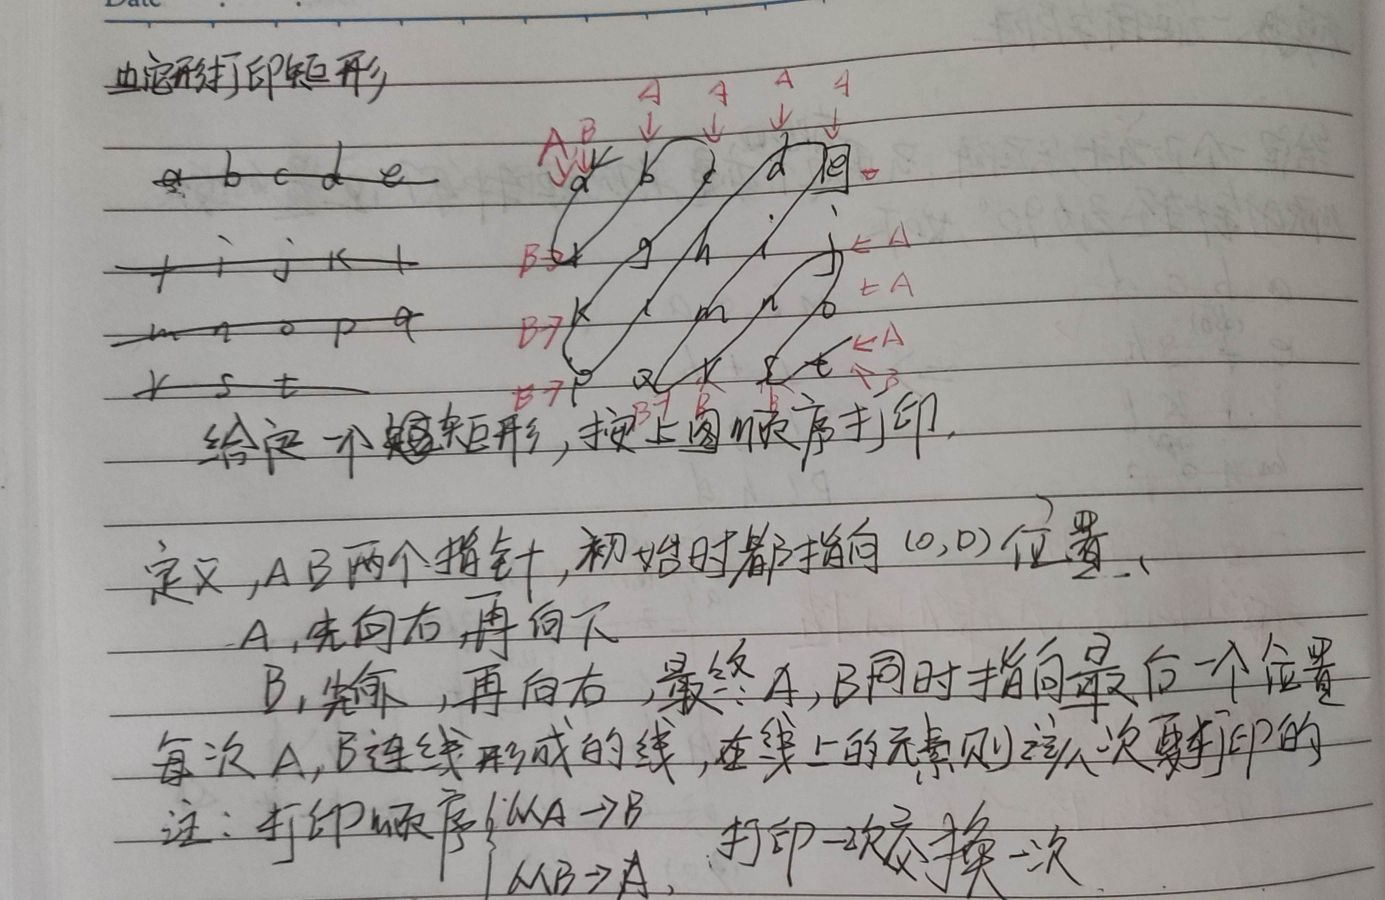 Date
之字形打印矩形
a b c d e
f i j k l
m n o p q
r s t
A B A A A A
a b c d e
B→ f g h i j ← A
← A
B→ k l m n o
← A
B→ p q r s t
B B B B
给定一个矩形,按上图顺序打印.
定义,AB两个指针,初始时都指向(0,0)位置.
A,先向右,再向下
B,先向下,再向右,最终A,B同时指向最后一个位置
每次A,B连线形成的线,在线上的元素则该次要打印的
注:打印顺序{从A→B
从B→A. 打印一次交换一次.